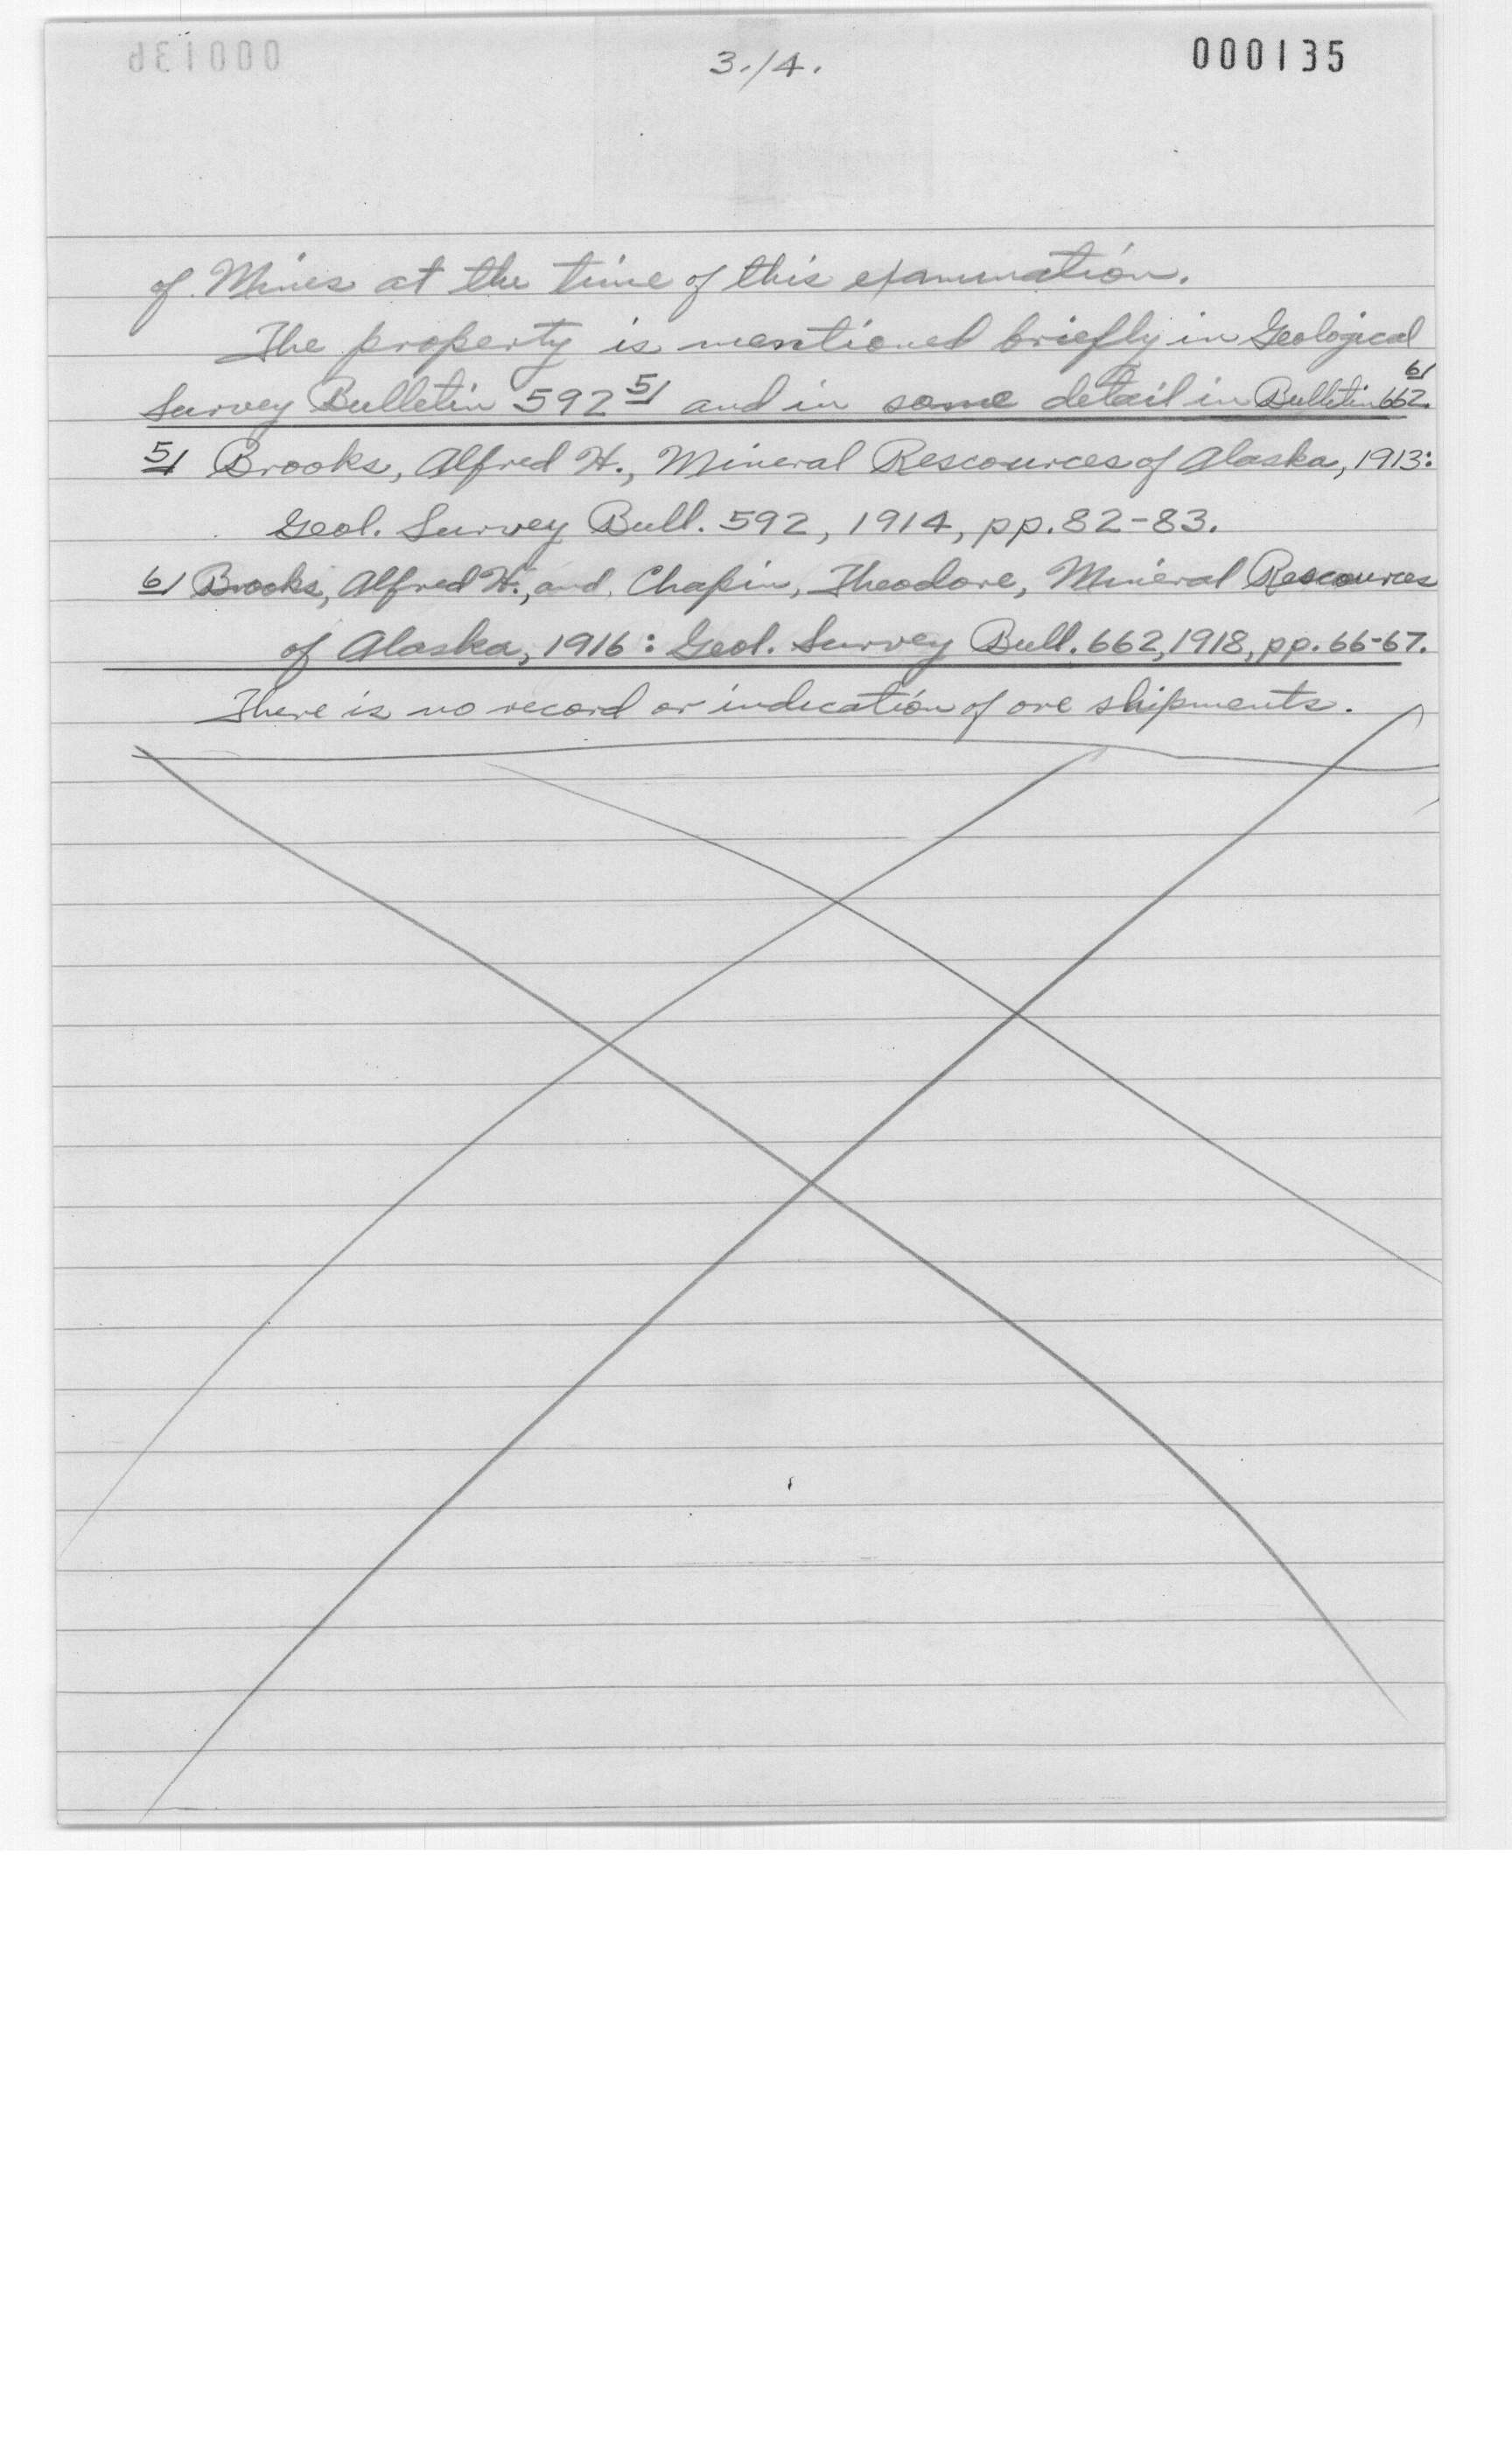 3./4.
000135
of Mines at the time of this examination.
The property is mentioned briefly in Geological
Survey Bulletin 592 5/ and in some detail in Bulletin 662. 6/
5/ Brooks, Alfred H., Mineral Rescources of Alaska, 1913:
Geol. Survey Bull. 592, 1914, pp. 82-83.
6/ Brooks, Alfred H., and Chapin, Theodore, Mineral Rescources
of Alaska, 1916: Geol. Survey Bull. 662, 1918, pp. 66-67.
There is no record or indication of ore shipments.